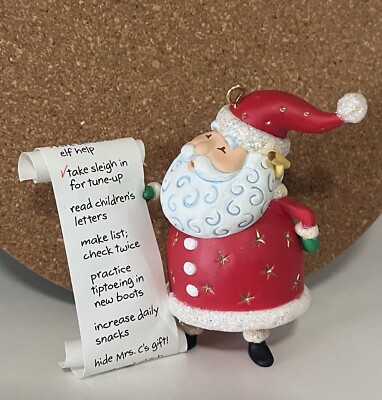 elf help
take sleigh in
for tune-up
read children's
letters
make list;
check twice
practice
tiptoeing in
new boots
increase daily
snacks
hide Mrs. C's gift!